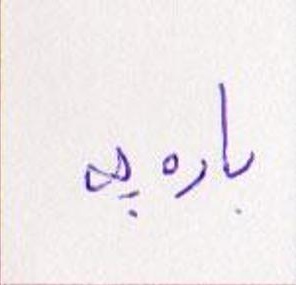 باره به